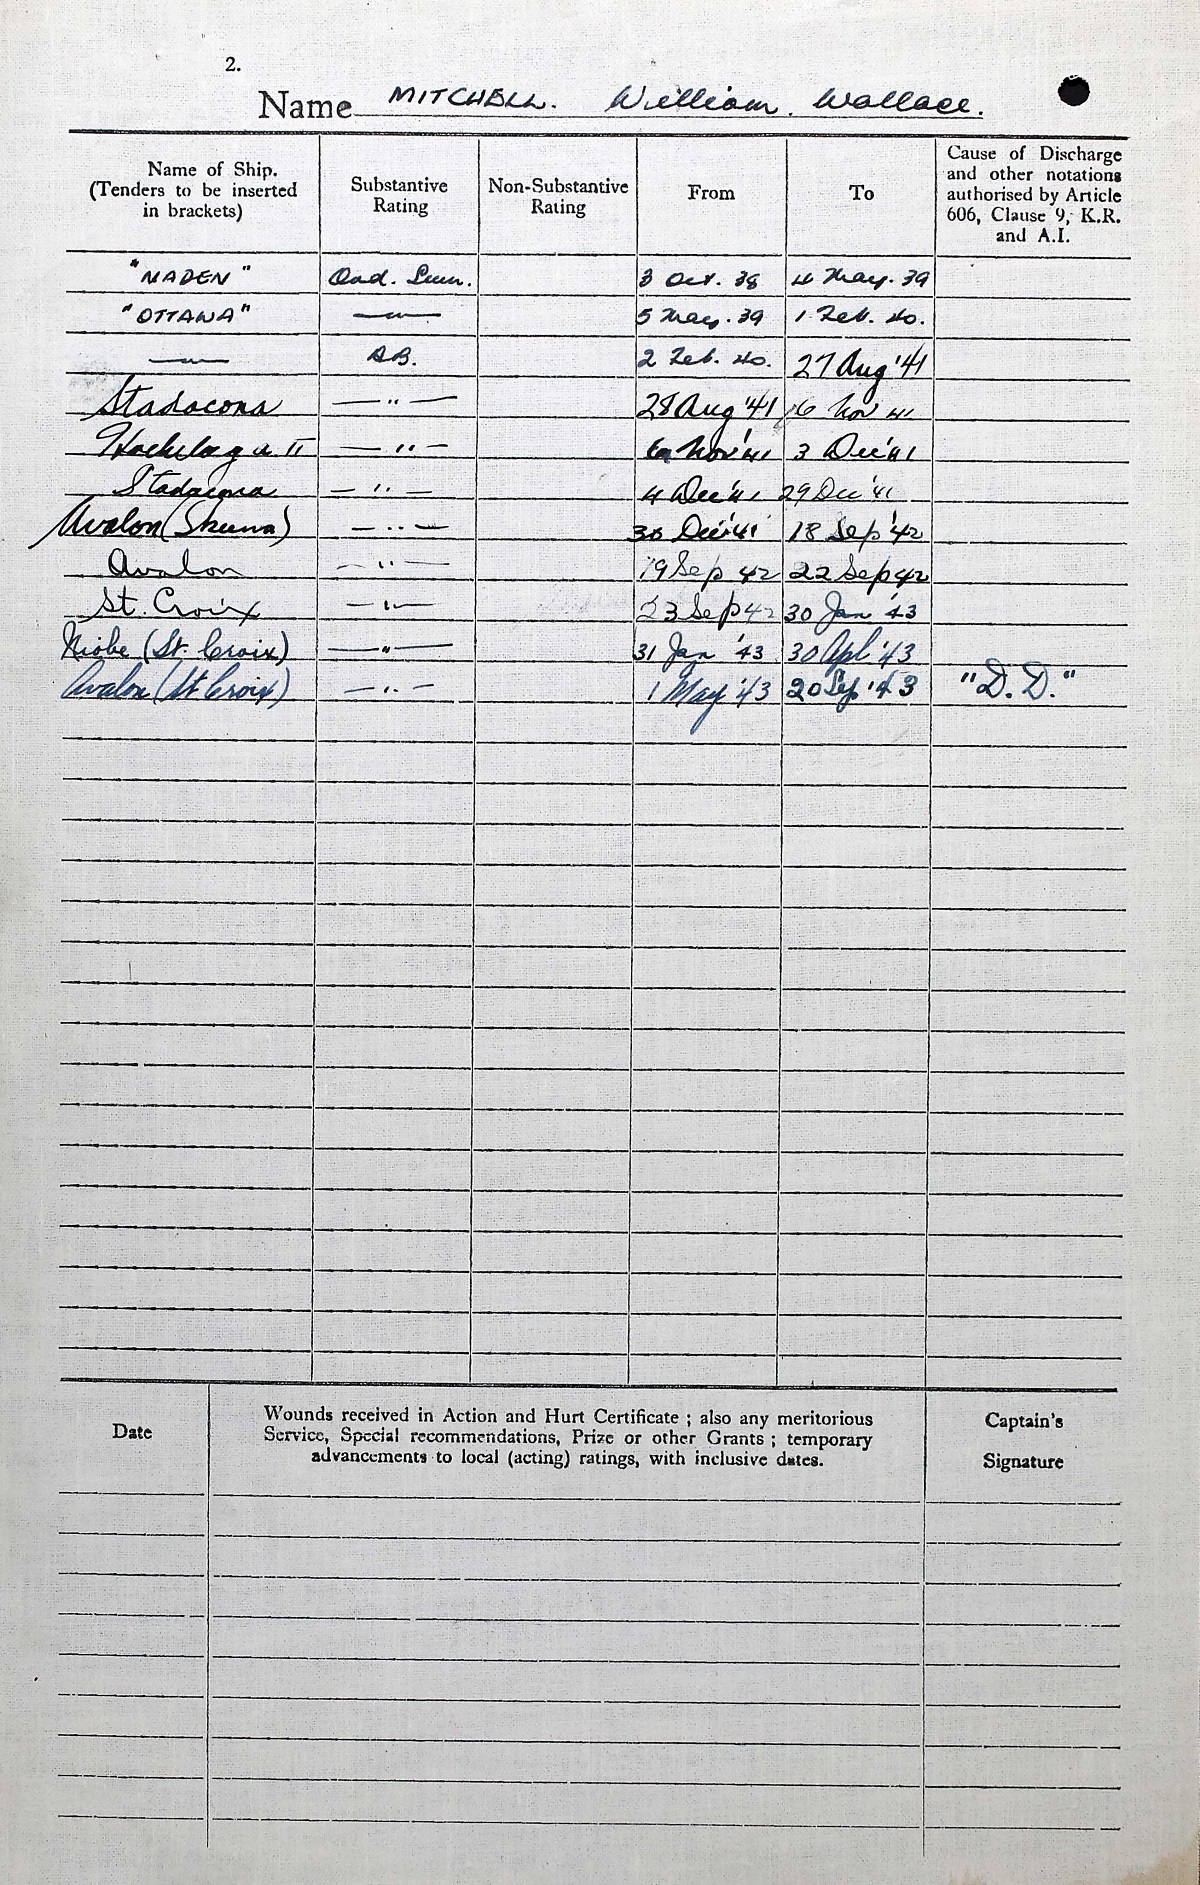 2.
Name MITCHELL. William. Wallace.
Name of Ship. (Tenders to be inserted in brackets) Substantive Rating Non-Substantive Rating From To Cause of Discharge and other notations authorised by Article 606, Clause 9, K.R. and A.I.
"NADEN" Ord. Smn. 3 Oct. 38 4 May. 39
"OTTAWA" —〃— 5 May. 39 1 Feb. 40.
—〃— A.B. 2 Feb. 40. 27 Aug '41
Stadacona — " — 28 Aug '41 Nov 41
Hochelaga II — " — Nov '41 3 Dec '41
Stadacona — " — 4 Dec '41 29 Dec '41
Avalon (Skuna) — " — 30 Dec '41 18 Sep '42
Avalon — " — 19 Sep 42 22 Sep 42
St. Croix — " — 23 Sep 42 30 Jan '43
Niobe (St. Croix) — " — 31 Jan '43 30 Apl '43
Avalon (St Croix) — " — 1 May '43 20 Sep '43 "D.D."
Date Wounds received in Action and Hurt Certificate ; also any meritorious Captain's
Service, Special recommendations, Prize or other Grants ; temporary
advancements to local (acting) ratings, with inclusive dates. Signature